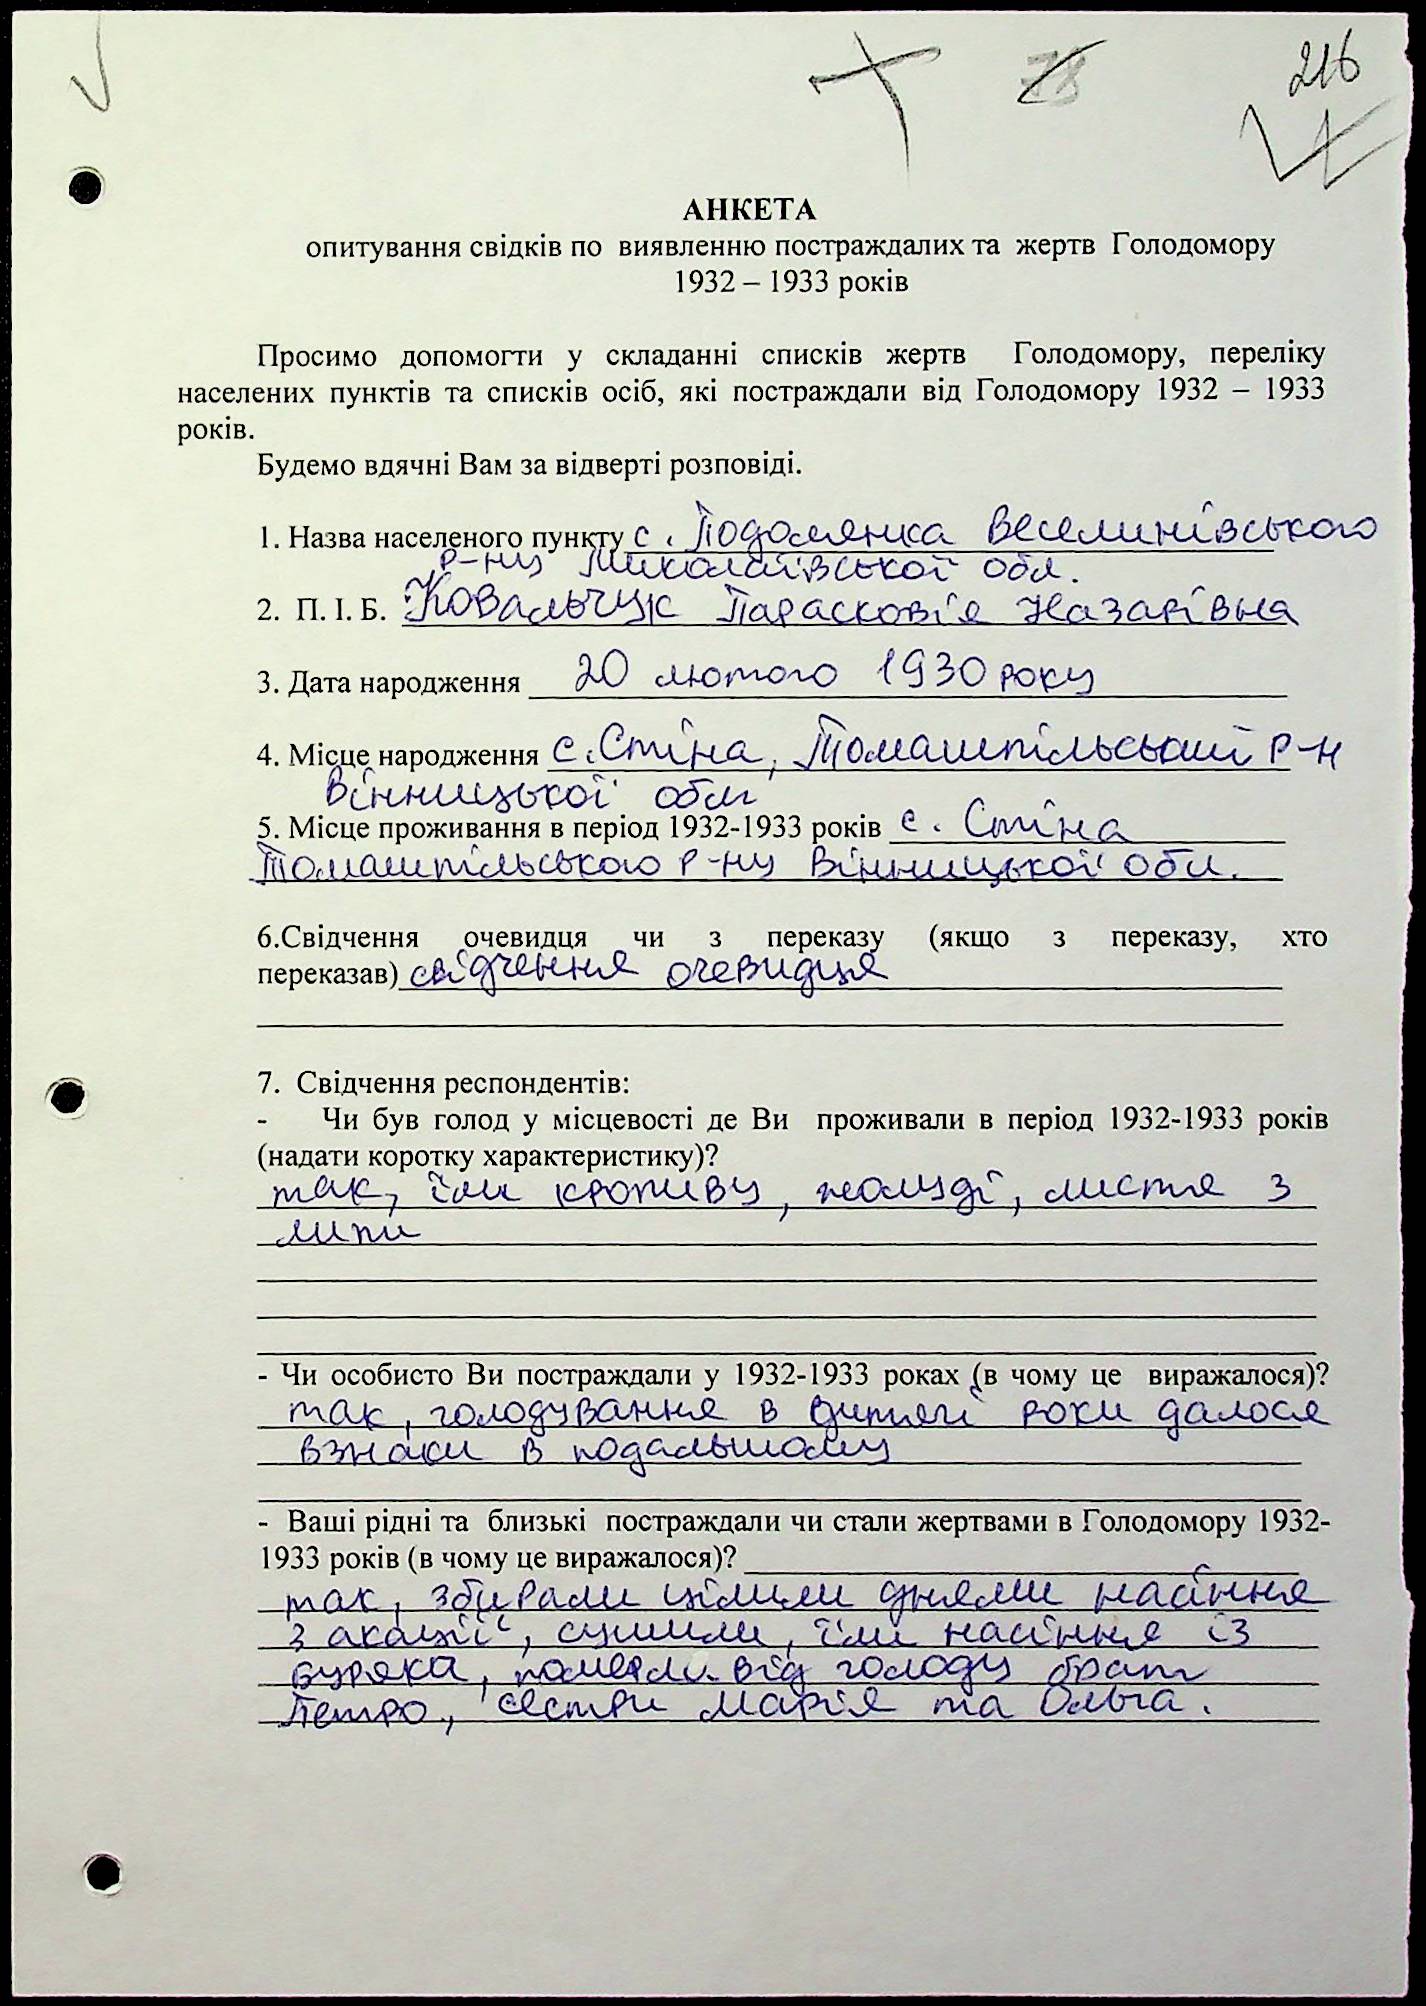 216
78
АНКЕТА
опитування свідків по виявленню постраждалих та жертв Голодомору
1932 – 1933 років
Просимо допомогти у складанні списків жертв Голодомору, переліку
населених пунктів та списків осіб, які постраждали від Голодомору 1932 – 1933
років.
Будемо вдячні Вам за відверті розповіді.
1. Назва населеного пункту с. Подолянка Веселинівського
р-ну Миколаївської обл.
2. П. І. Б. Ковальчук Парасковія Назарівна
3. Дата народження 20 лютого 1930 року
4. Місце народження с. Стіна, Томашпільський р-н
Вінницької обл
5. Місце проживання в період 1932-1933 років с. Стіна
Томашпільського р-ну Вінницької обл.
6.Свідчення очевидця чи з переказу (якщо з переказу, хто
переказав) свідчення очевидця
7. Свідчення респондентів:
- Чи був голод у місцевості де Ви проживали в період 1932-1933 років
(надати коротку характеристику)?
так, їли кропиву, жолуді, листя з
липи
- Чи особисто Ви постраждали у 1932-1933 роках (в чому це виражалося)?
так, голодування в дитячі роки далося
взнаки в подальшому
- Ваші рідні та близькі постраждали чи стали жертвами в Голодомору 1932-
1933 років (в чому це виражалося)?
так, збирали цілими днями насіння
з акації, сушили, їли насіння із
буряка, померли від голоду брат
Петро, сестри Марія та Ольга.